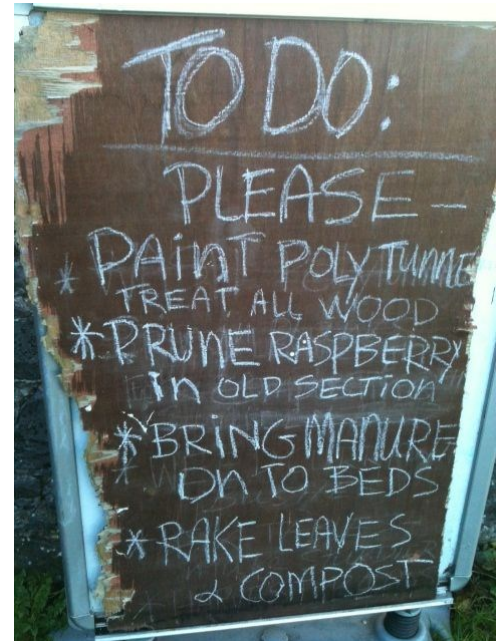 TO DO:
PLEASE -
* PAINT POLY TUNNE
TREAT ALL WOOD
* PRUNE RASPBERRY
in OLD SECTION
* BRING MANURE
ON TO BEDS
* RAKE LEAVES
& COMPOST